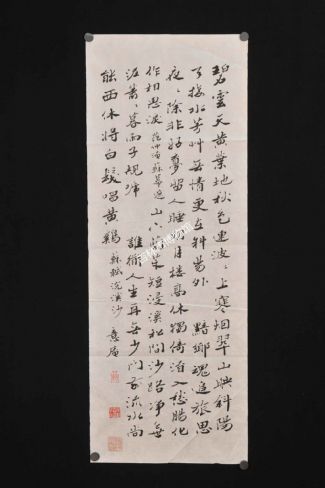 碧雲天黄葉地秋色連波〻上寒烟翠山映斜陽
天接水芳草無情更在斜陽外 黯鄉魂追旅思
夜〻除非好夢留人睡明月樓高休獨倚酒入愁腸化
作相思淚 范仲淹蘇幕遮 山下蘭芽短浸溪松間沙路净無
泥蕭〻暮雨子規啼 誰道人生再無少門前流水尚
能西休將白髮唱黄鷄 蘇軾浣溪沙 意庵